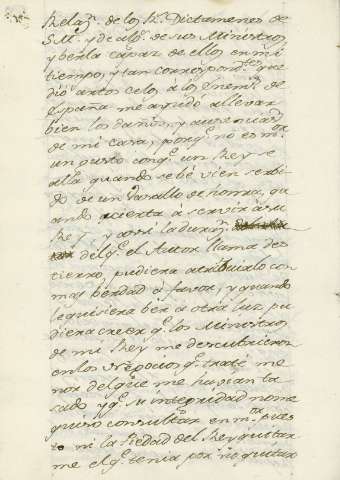 Relaz.ⁿ de los R.ˢ Dictamenes de
S. M.ᵈ y de alg.ˢ de sus Ministros,
y berla capaz de ellos en mi
tiempo, y tan correspond.ᵗᵉˢ que
dió antes celos a los Enem.ˢ de
España me ayudó a llevar
bien los daños, y ausencias
de mi casa, porq.ᵉ no es m.ᵒʳ
un gusto con q.ᵉ un Rey se
alla quando se bé vien serbi-
do de un Vasallo de honra, qu
ando acierta a servir a su
Rey, y assi la duraz.ⁿ
del q.ᵉ el Autor llama des
tierro, pudiera atribuirlo con
mas berdad a favor, y quando
le quisiera ber a otra luz, pu
diera creer q.ᵉ los Ministros
de mi Rey me descubrieron
en los negocios q.ᵉ traté me
nos del que me havian ta
sado y q.ᵉ su integridad no me
quiso consultar en m.ᵒʳ pues
to ni la Piedad del Rey quitar
me el q.ᵉ tenia por no quitar